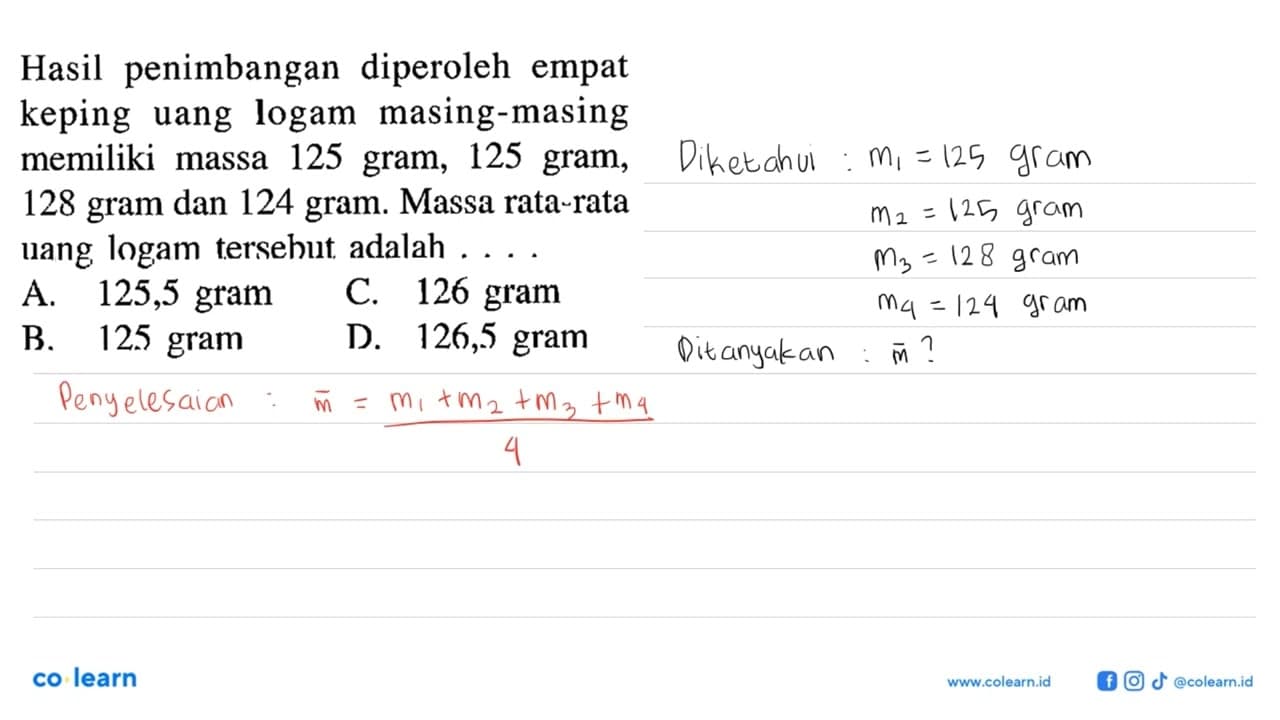 Hasil penimbangan diperoleh empat
keping uang logam masing-masing
memiliki massa 125 gram, 125 gram,
128 gram dan 124 gram. Massa rata-rata
uang logam tersebut adalah . . . .
A. 125,5 gram C. 126 gram
B. 125 gram D. 126,5 gram
Diketahui : m₁ = 125 gram
m₂ = 125 gram
m₃ = 128 gram
m₄ = 124 gram
Ditanyakan : m̄ ?
Penyelesaian : m̄ = m₁ + m₂ + m₃ + m₄
4
co learn
www.colearn.id
@colearn.id